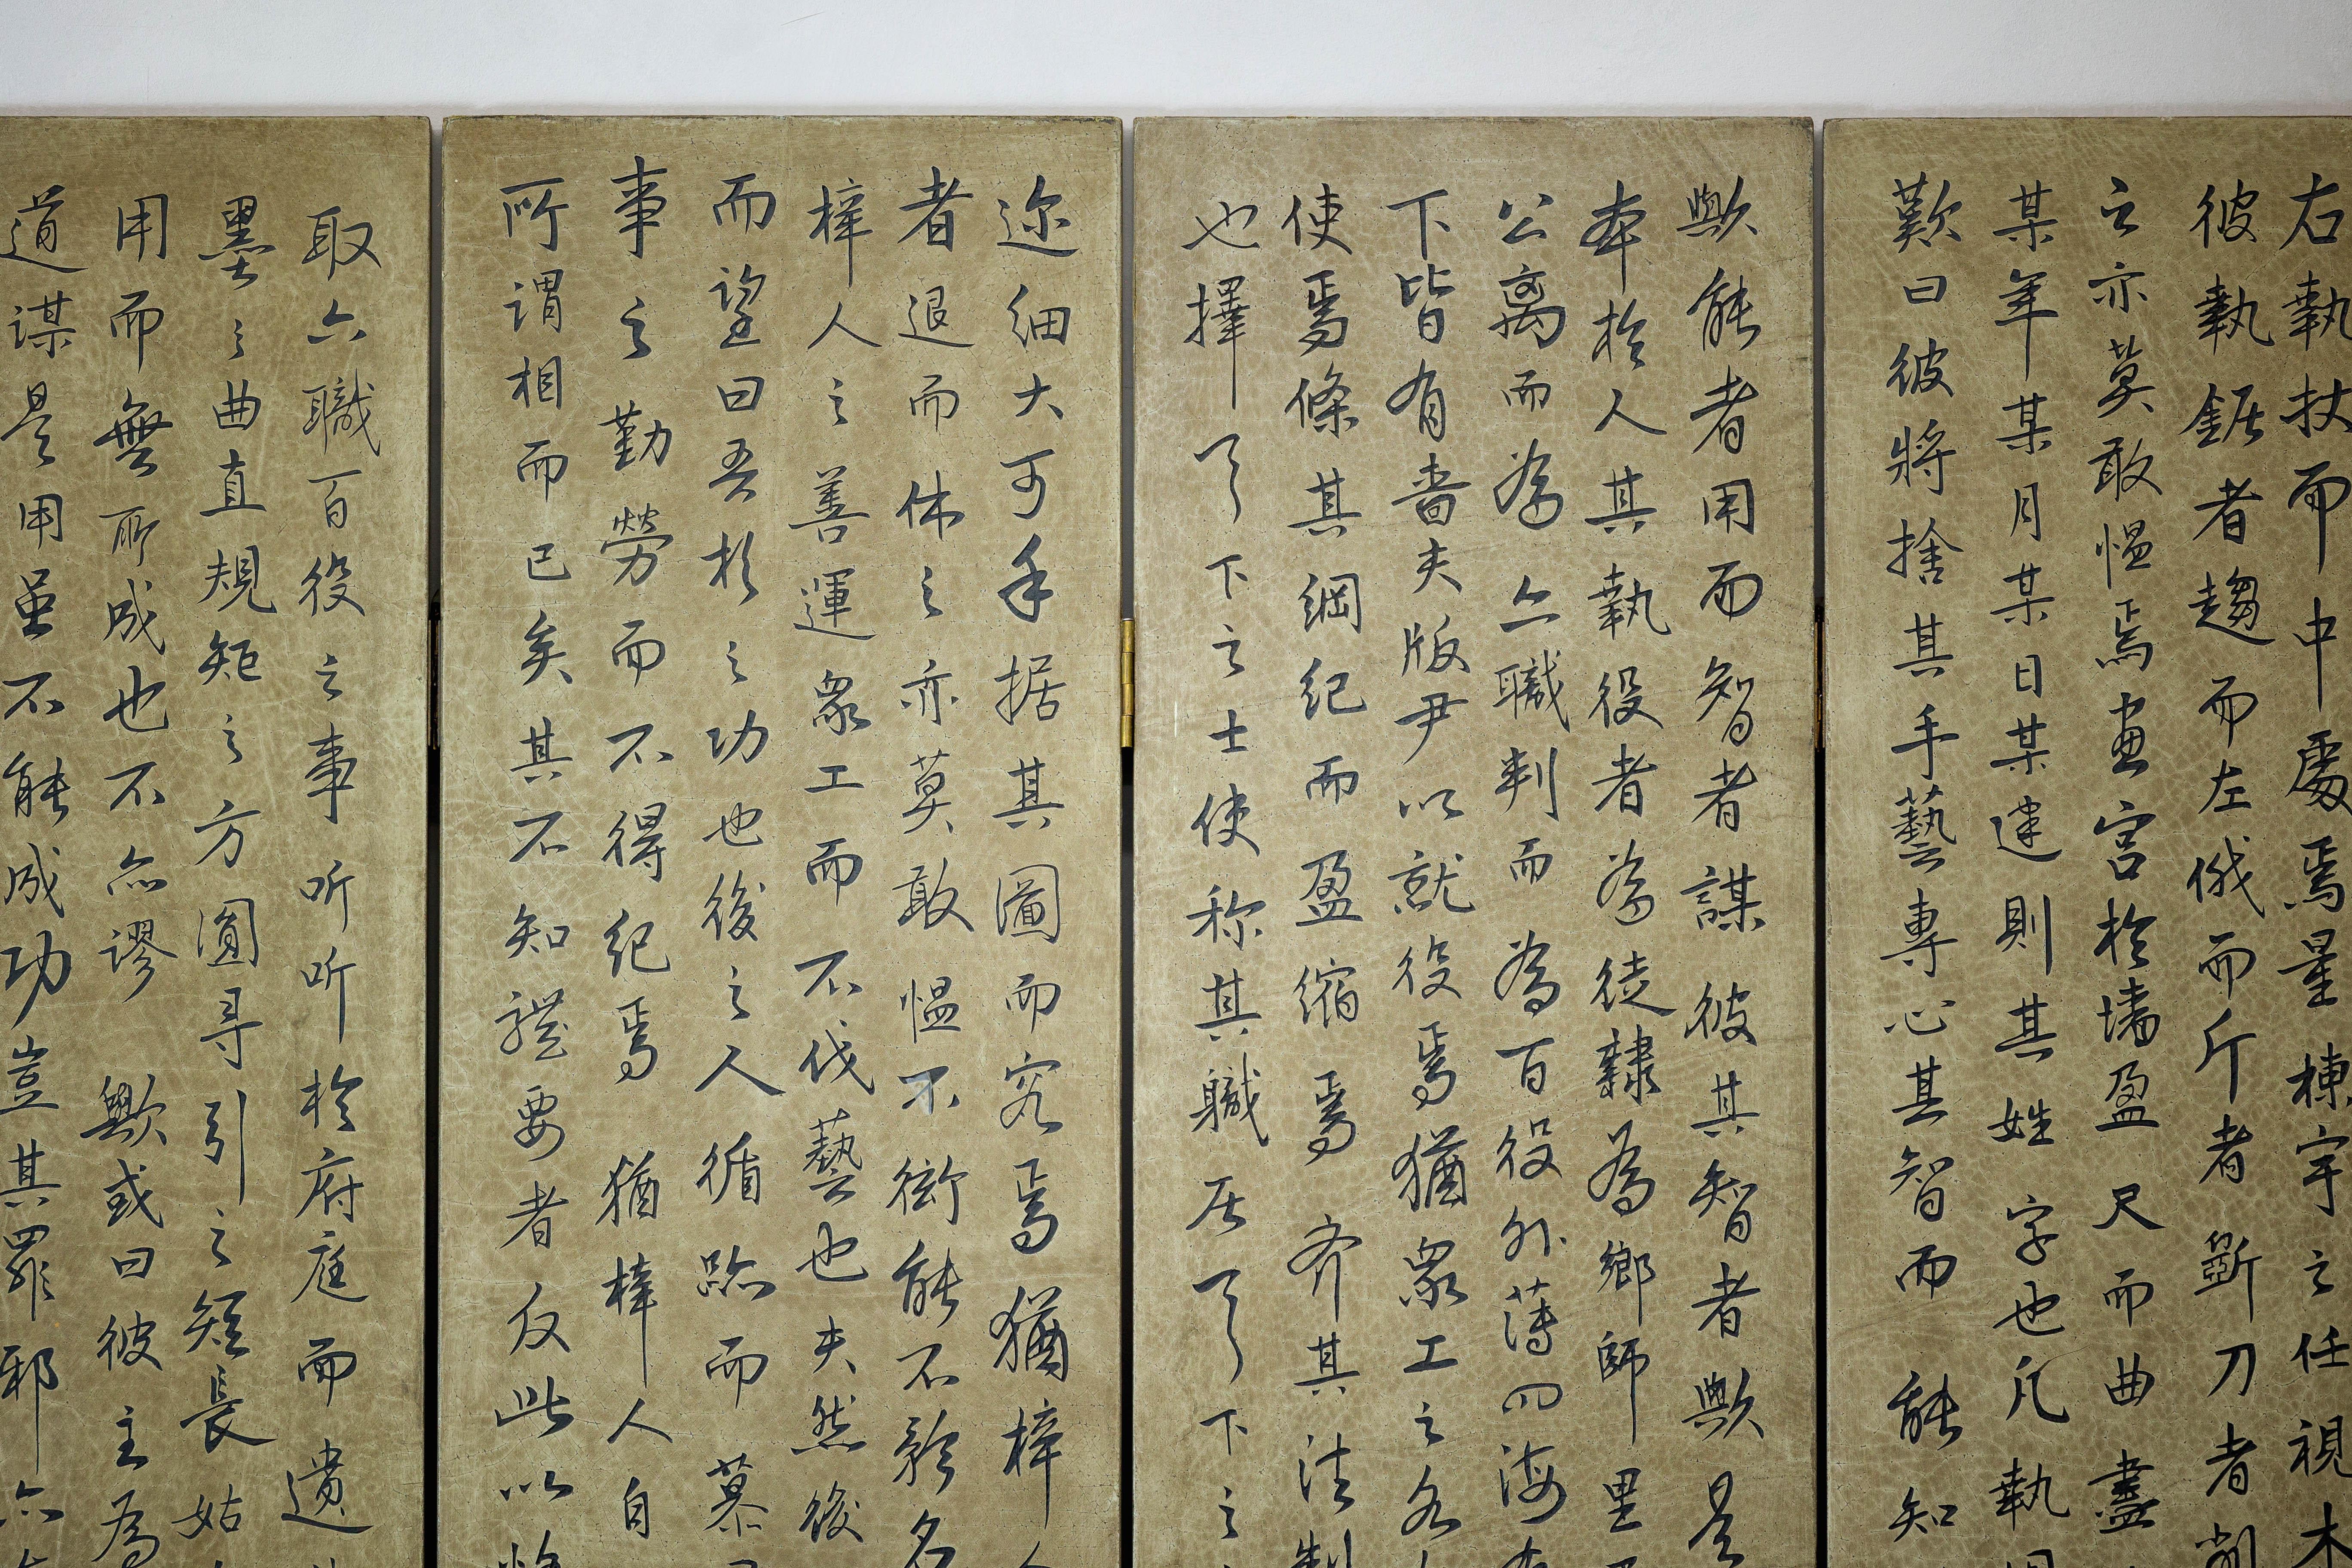 右執扙而中處焉量棟宇之任視木
彼執鋸者趨而左俄而斤者斲刀者削
之亦莫敢愠焉畫宮於墻盈尺而曲盡
某年某月某日某建則其姓字也凡執
歎曰彼將捨其手藝專心其智而能知
歟能者用而智者謀彼其智者歟是
本於人其執役者為徒隸為鄉師里
公離而為六職判而為百役外薄四海
下皆有嗇夫版尹以就役焉猶眾工之各
使焉條其綱紀而盈缩焉齐其法制
也擇了下之士使称其職居了下之
迩細大可手据其圖而究焉猶梓人
者退而休之亦莫敢愠不衒能不矜名
梓人之善運眾工而不伐藝也夫然後
而望曰吾於之功也後之人循跡而慕
事之勤勞而不得紀焉猶梓人自
所謂相而已矣其不知體要者反此以恪
取六職百役之事听听於府庭而遺
墨之曲直規矩之方圓寻引之短長姑
用而無所成也不亦謬歟或曰彼主為
道謀是用虽不能成功豈其罪邪亦